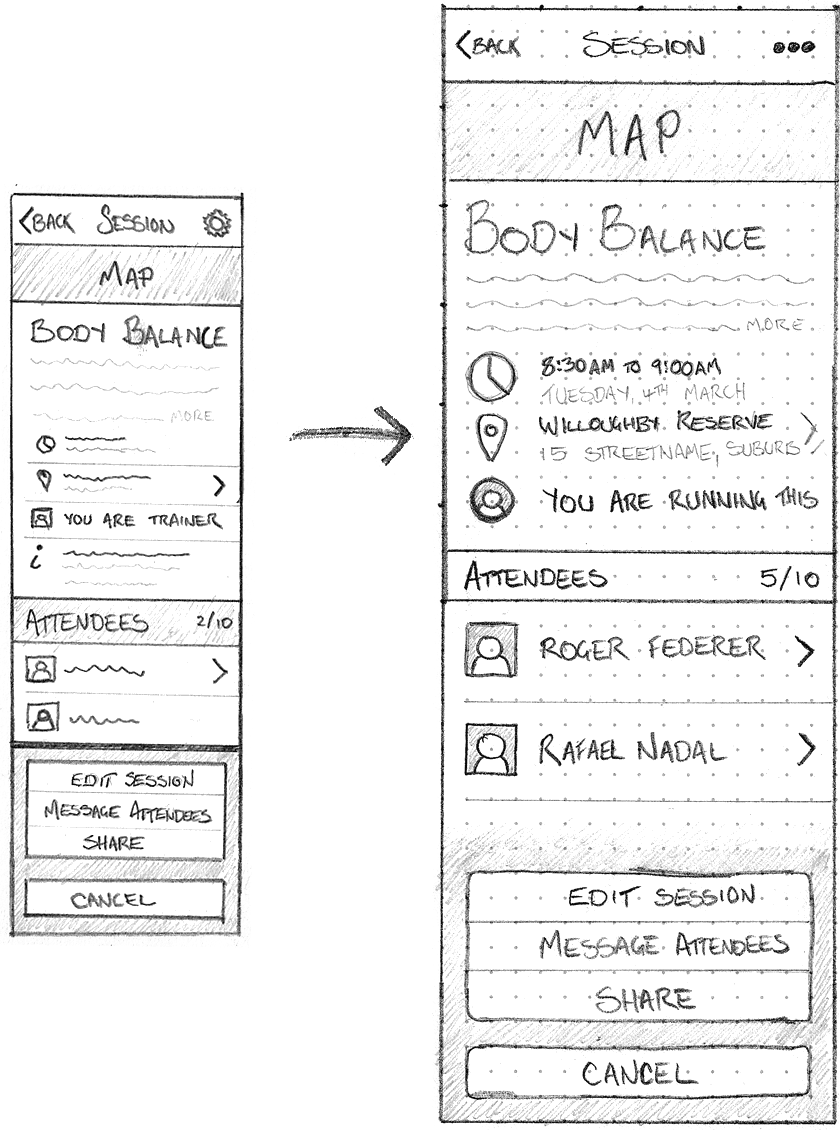 BACK SESSION
MAP
BODY BALANCE
MORE
YOU ARE TRAINER
i
ATTENDEES 2/10
EDIT SESSION
MESSAGE ATTENDEES
SHARE
CANCEL
BACK SESSION
MAP
BODY BALANCE
MORE
8:30AM TO 9:00AM
TUESDAY, 4TH MARCH
WILLOUGHBY RESERVE
15 STREETNAME, SUBURB
YOU ARE RUNNING THIS
ATTENDEES 5/10
ROGER FEDERER
RAFAEL NADAL
EDIT SESSION
MESSAGE ATTENDEES
SHARE
CANCEL